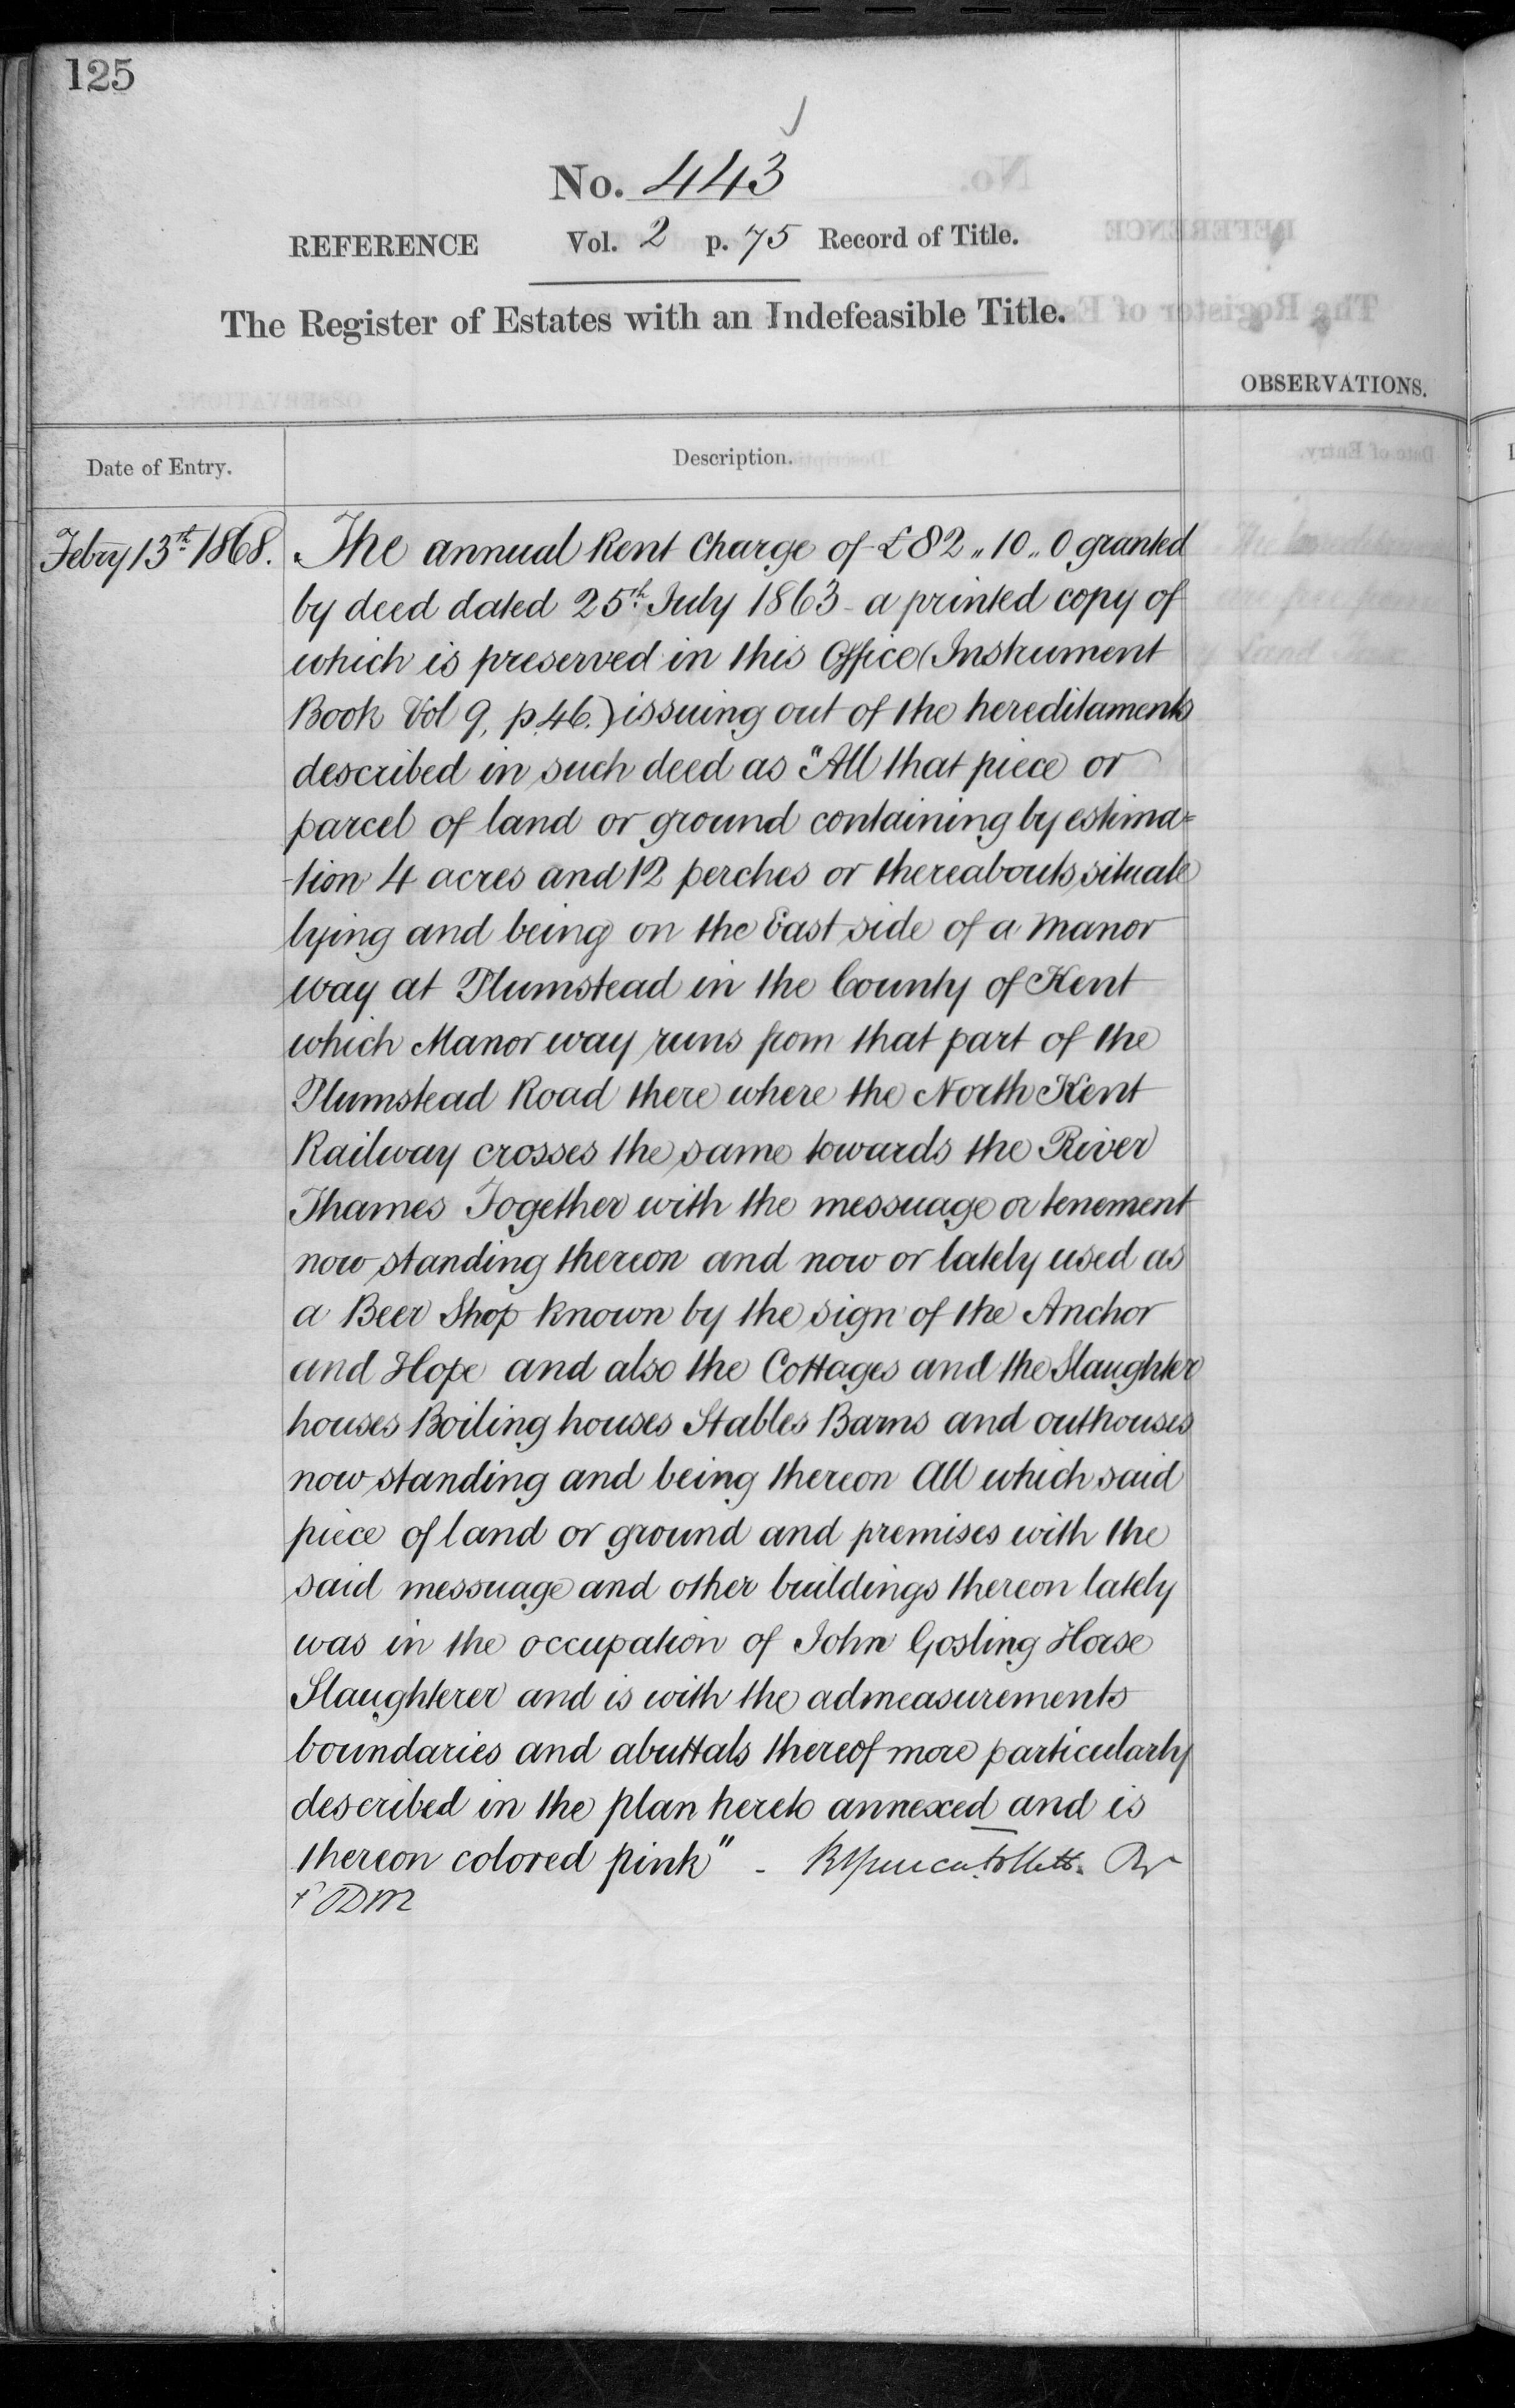 125
No. 443
REFERENCE Vol. 2 p. 75 Record of Title.
The Register of Estates with an Indefeasible Title.
OBSERVATIONS.
Date of Entry. Description.
Febry 13th 1868. The annual Rent Charge of £82,,10,,0 granted
by deed dated 25th July 1863 - a printed copy of
which is preserved in this Office (Instrument
Book Vol 9, p.46.) issuing out of the hereditaments
described in such deed as "All that piece or
parcel of land or ground containing by estima=
-tion 4 acres and 12 perches or thereabouts, situate
lying and being on the East side of a Manor
way at Plumstead in the County of Kent
which Manor way runs from that part of the
Plumstead Road there where the North Kent
Railway crosses the same towards the River
Thames Together with the messuage or tenement
now standing thereon and now or lately used as
a Beer Shop known by the sign of the Anchor
and Hope and also the Cottages and the Slaughter
houses Boiling houses Stables Barns and outhouses
now standing and being thereon All which said
piece of land or ground and premises with the
said messuage and other buildings thereon lately
was in the occupation of John Gosling Horse
Slaughterer and is with the admeasurements
boundaries and abuttals thereof more particularly
described in the plan hereto annexed and is
thereon colored pink" -